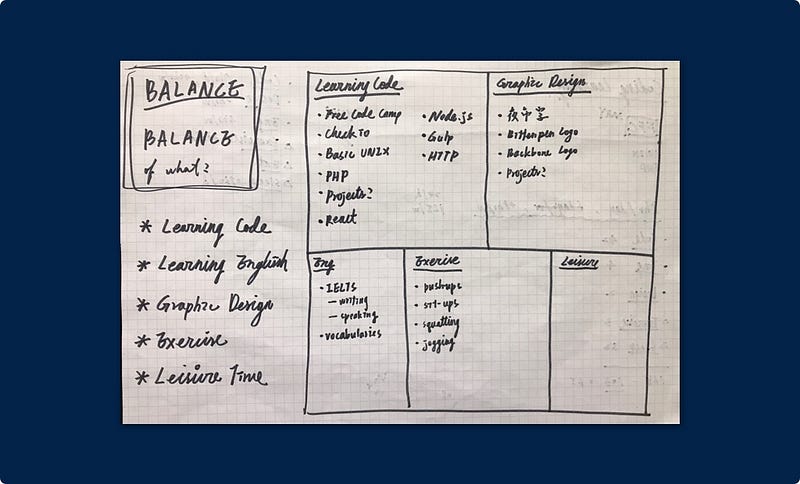 BALANCE
BALANCE
of what?
* Learning Code
* Learning English
* Graphic Design
* Exercise
* Leisure Time
Learning Code
• Free Code Camp
• CheckIo
• Basic UNIX
• PHP
• Projects?
• React
• Node.js
• Gulp
• HTTP
Graphic Design
• Bitterpen Logo
• Backbone Logo
• Projects?
Eng
• IELTS
– writing
– speaking
• vocabularies
Exercise
• pushups
• sit-ups
• squatting
• jogging
Leisure